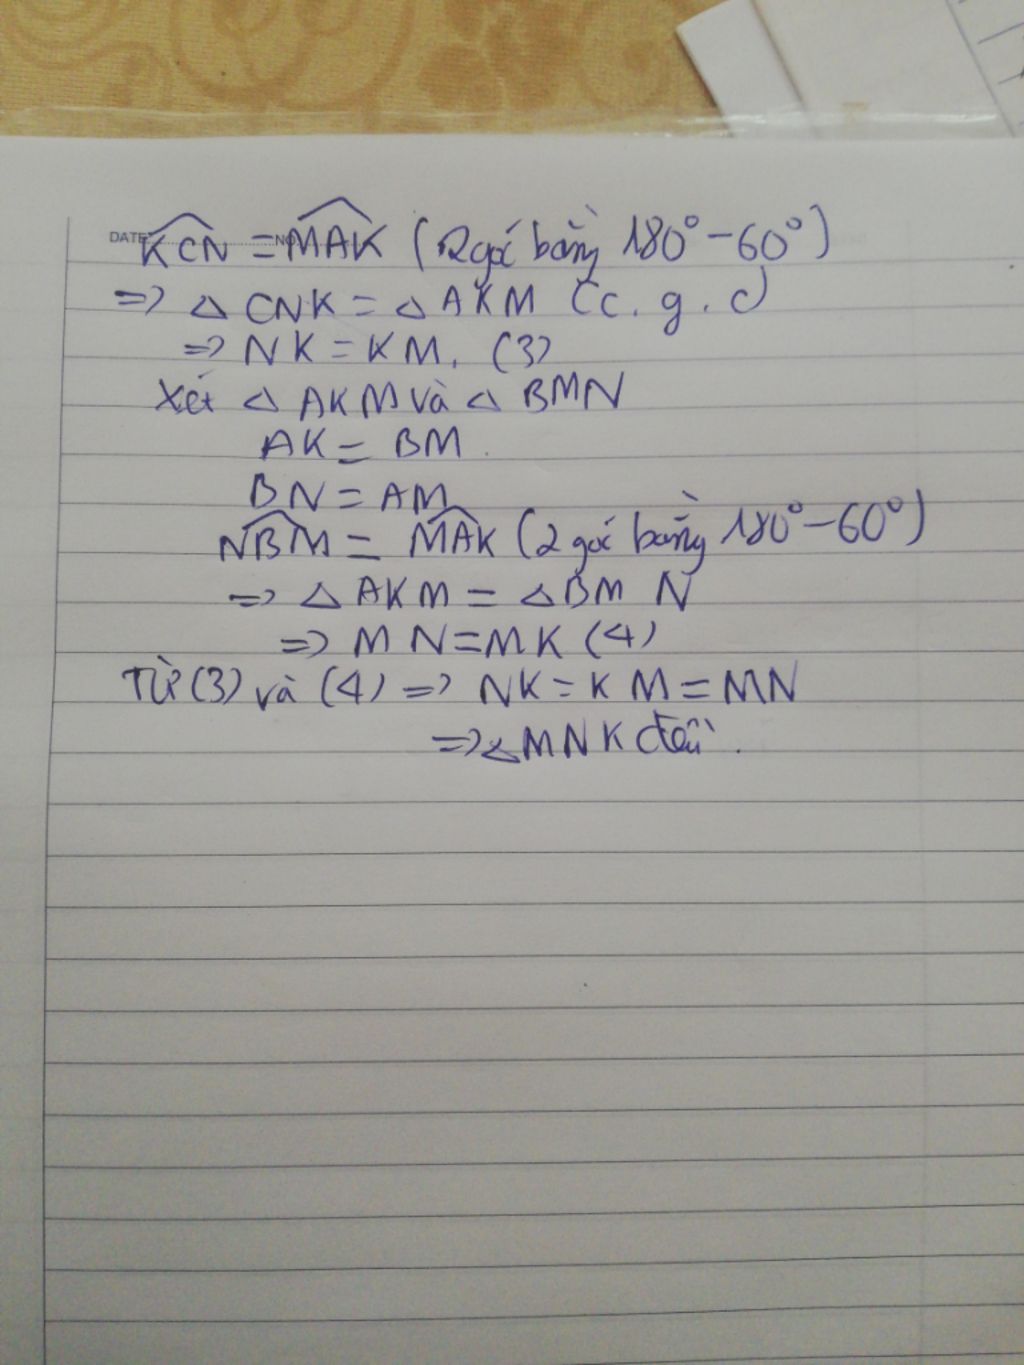 DATE NO
KCN = MAK (2 góc bằng 180° - 60°)
=> △ CNK = △ AKM (c.g.c)
=> NK = KM. (3)
Xét △ AKM và △ BMN
AK = BM.
BN = AM
NBM = MAK (2 góc bằng 180° - 60°)
=> △ AKM = △ BMN
=> MN = MK (4)
Từ (3) và (4) => NK = KM = MN
=> △ MNK đều.